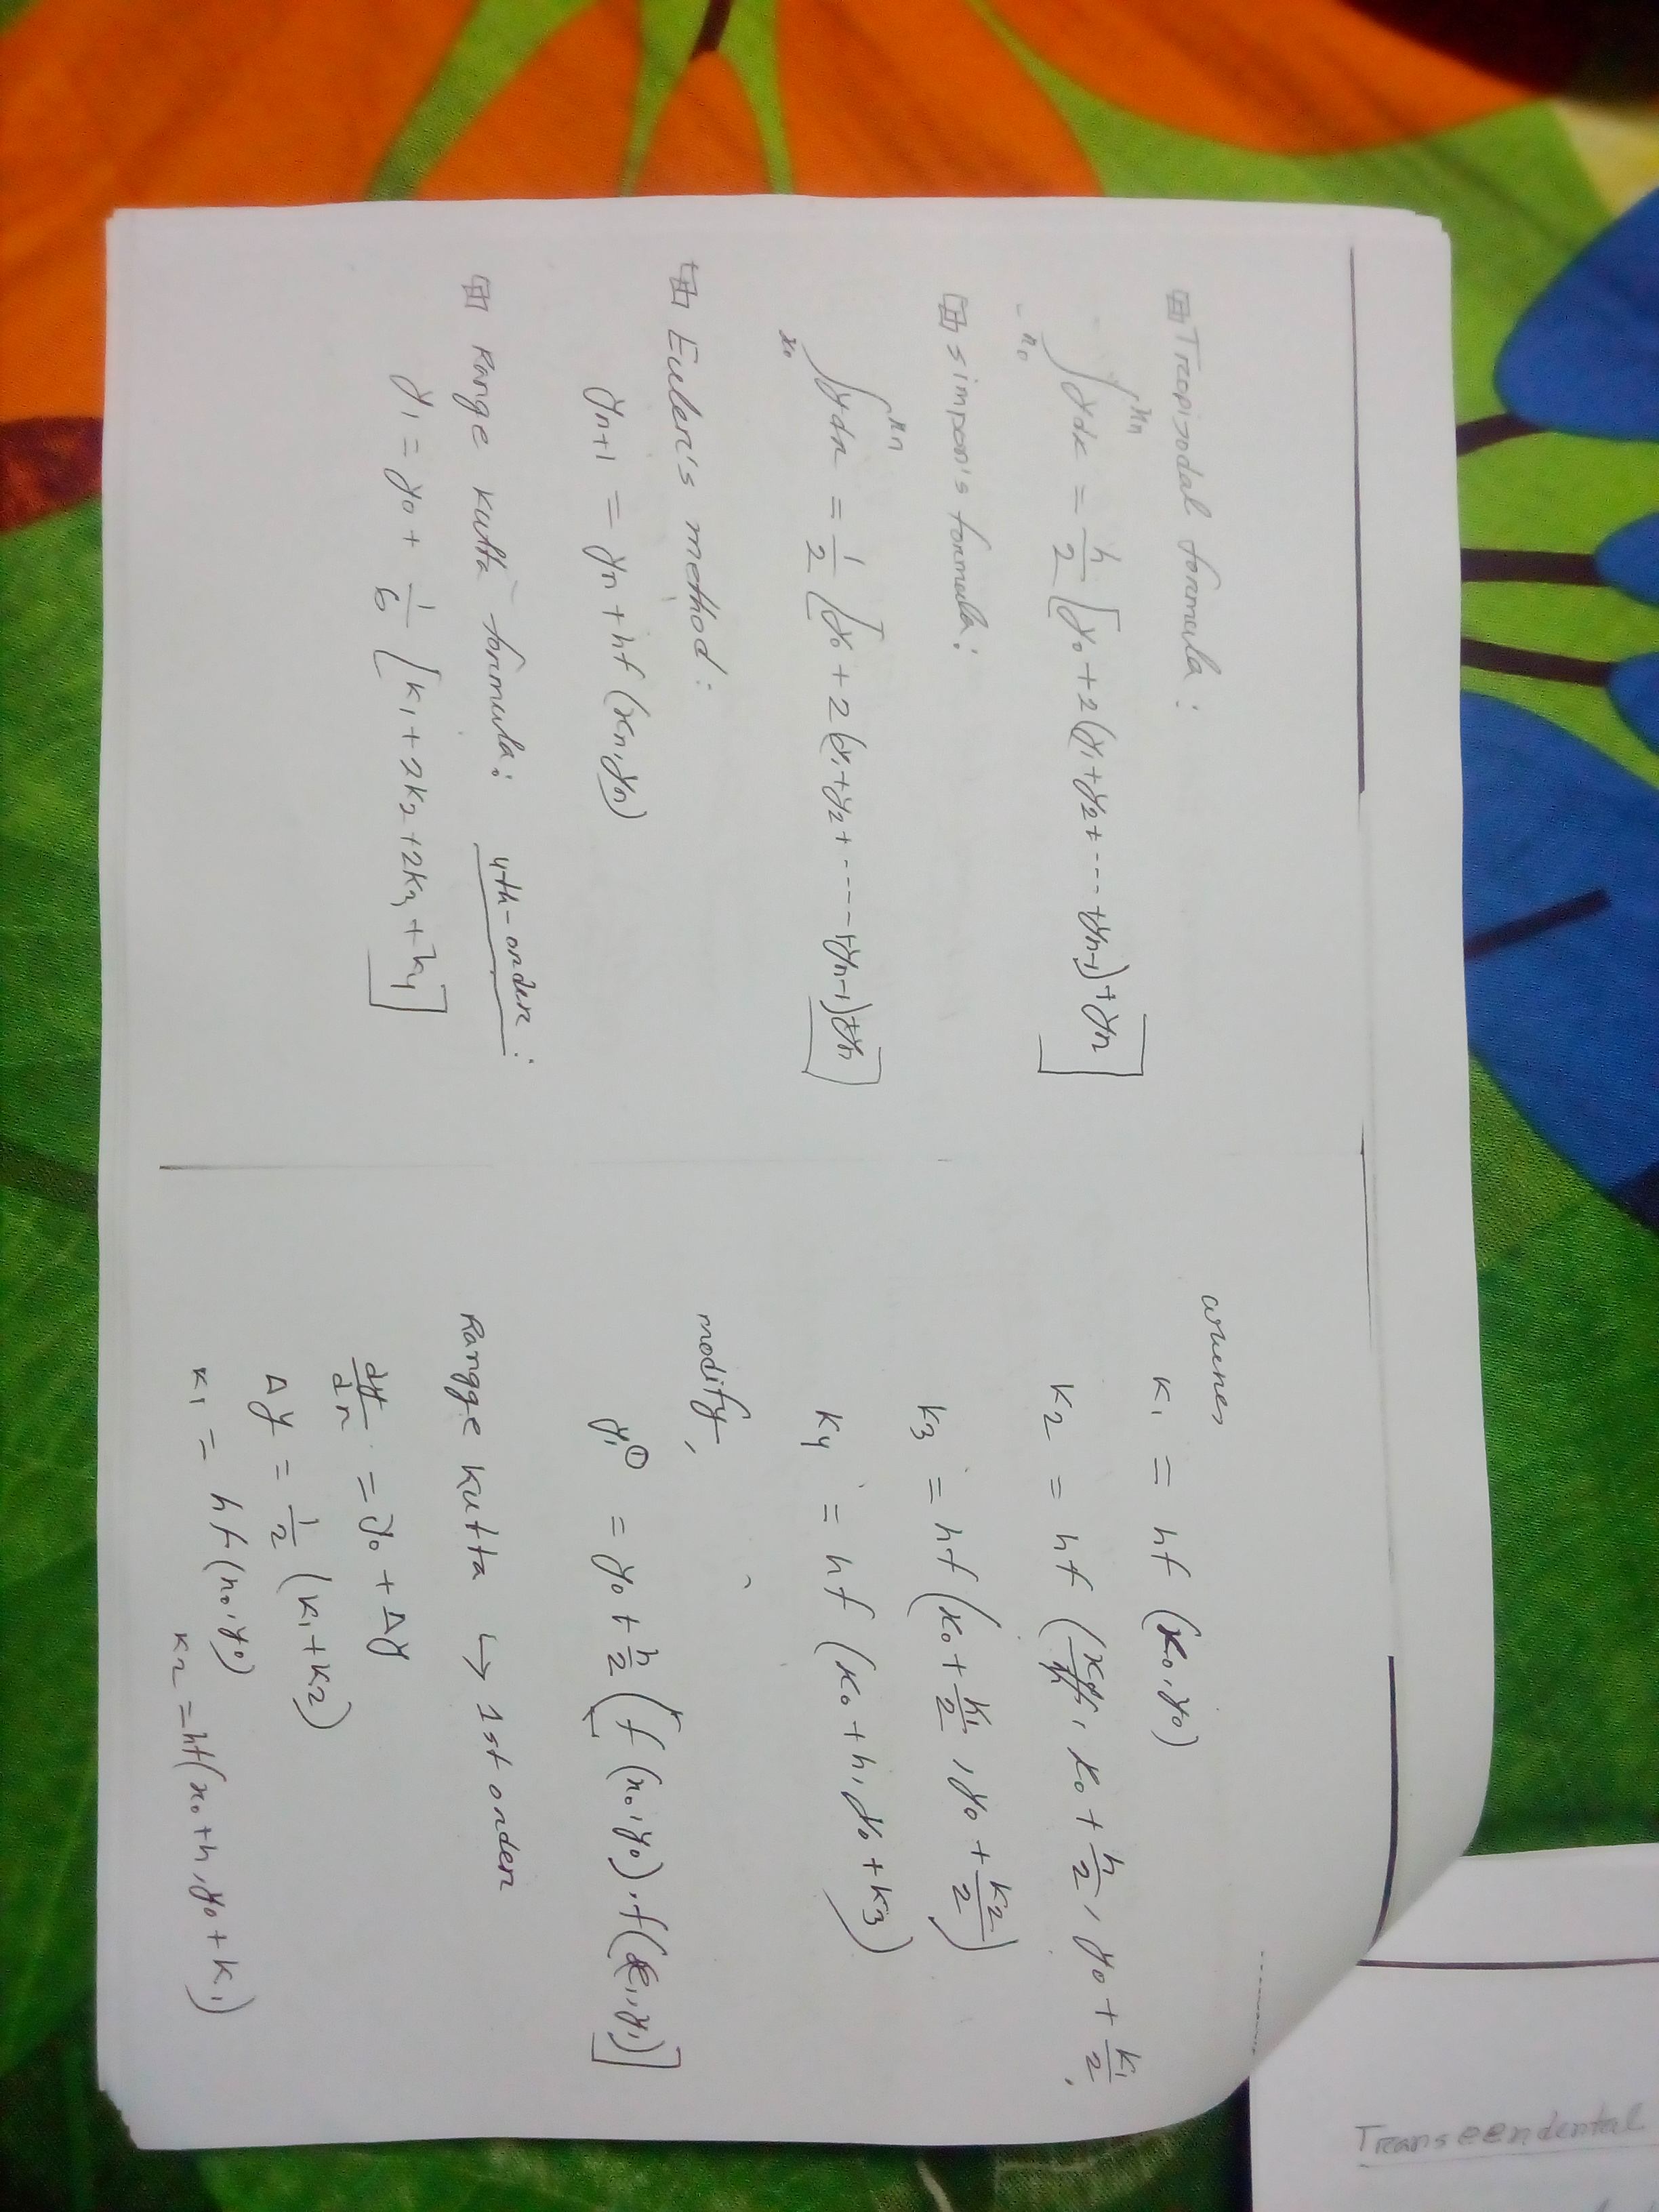 Transeendental
Trapizodal formula:
∫x₀^xₙ ydx = h/2 [y₀ + 2(y₁+y₂+ ---- +yₙ₋₁)+yₙ]
simpson's formula:
∫x₀^xₙ ydx = 1/2 [y₀ + 2(y₁+y₂+ ----- +yₙ₋₁)+yₙ]
Euler's method:
yₙ₊₁ = yₙ + hf (xₙ, yₙ)
Range kutta formula: 4th-order:
y₁ = y₀ + 1/6 [k₁ + 2k₂ + 2k₃ + k₄]
where,
k₁ = hf (x₀, y₀)
k₂ = hf ( x₀ + h/2, y₀ + k₁/2,
k₃ = hf (x₀ + h/2, y₀ + k₂/2)
k₄ = hf (x₀ + h, y₀ + k₃)
modify,
y₁① = y₀ + h/2 (f (x₀, y₀), f(x₁, y₁)]
Rangge kutta ↳ 1st order
dy/dx = y₀ + Δy
Δy = 1/2 (k₁ + k₂)
k₁ = hf (x₀, y₀)
k₂ = hf (x₀ + h, y₀ + k₁)